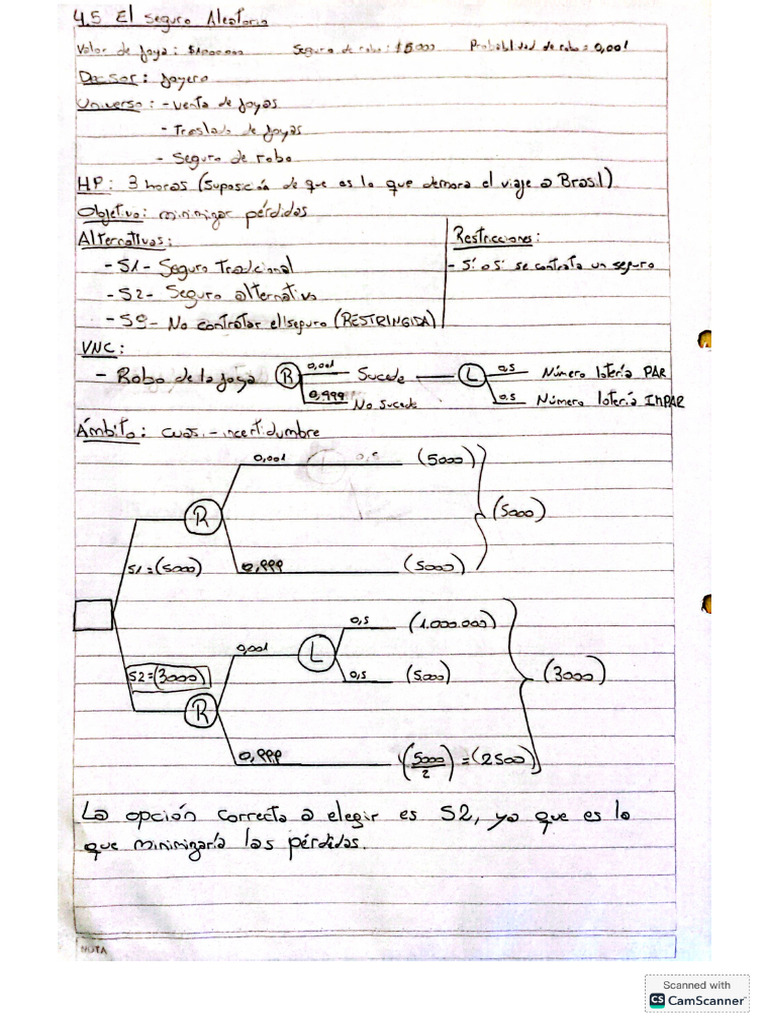 4.5 El Seguro Aleatorio
Valor de joya: $1.000.000 Seguro de robo: $5000 Probabilidad de robo = 0,001
Decisor: joyero
Universo: - venta de joyas
- Traslado de joyas
- Seguro de robo
HP: 3 horas (suposición de que es lo que demora el viaje a Brasil)
Objetivo: minimizar pérdidas
Alternativas: Restricciones:
- S1 - Seguro Tradicional - Sí o Sí se contrata un seguro
- S2 - Seguro alternativo
- S0 - No contratar el seguro (RESTRINGIDA)
VNC:
- Robo de la joya R 0,001 Sucede L 0,5 Número lotería PAR
0,999 No sucede 0.5 Número lotería IMPAR
Ámbito: cuasi-incertidumbre
0,001 (5000)
R (5000)
S1=(5000) 0,999 (5000)
0,5 (1.000.000)
0,001 L
S2=(3000) 0,5 (5000) (3000)
R
0,999 (5000/2) = (2500)
La opción correcta a elegir es S2, ya que es la
que minimizaría las pérdidas.
NOTA
Scanned with
CS CamScanner